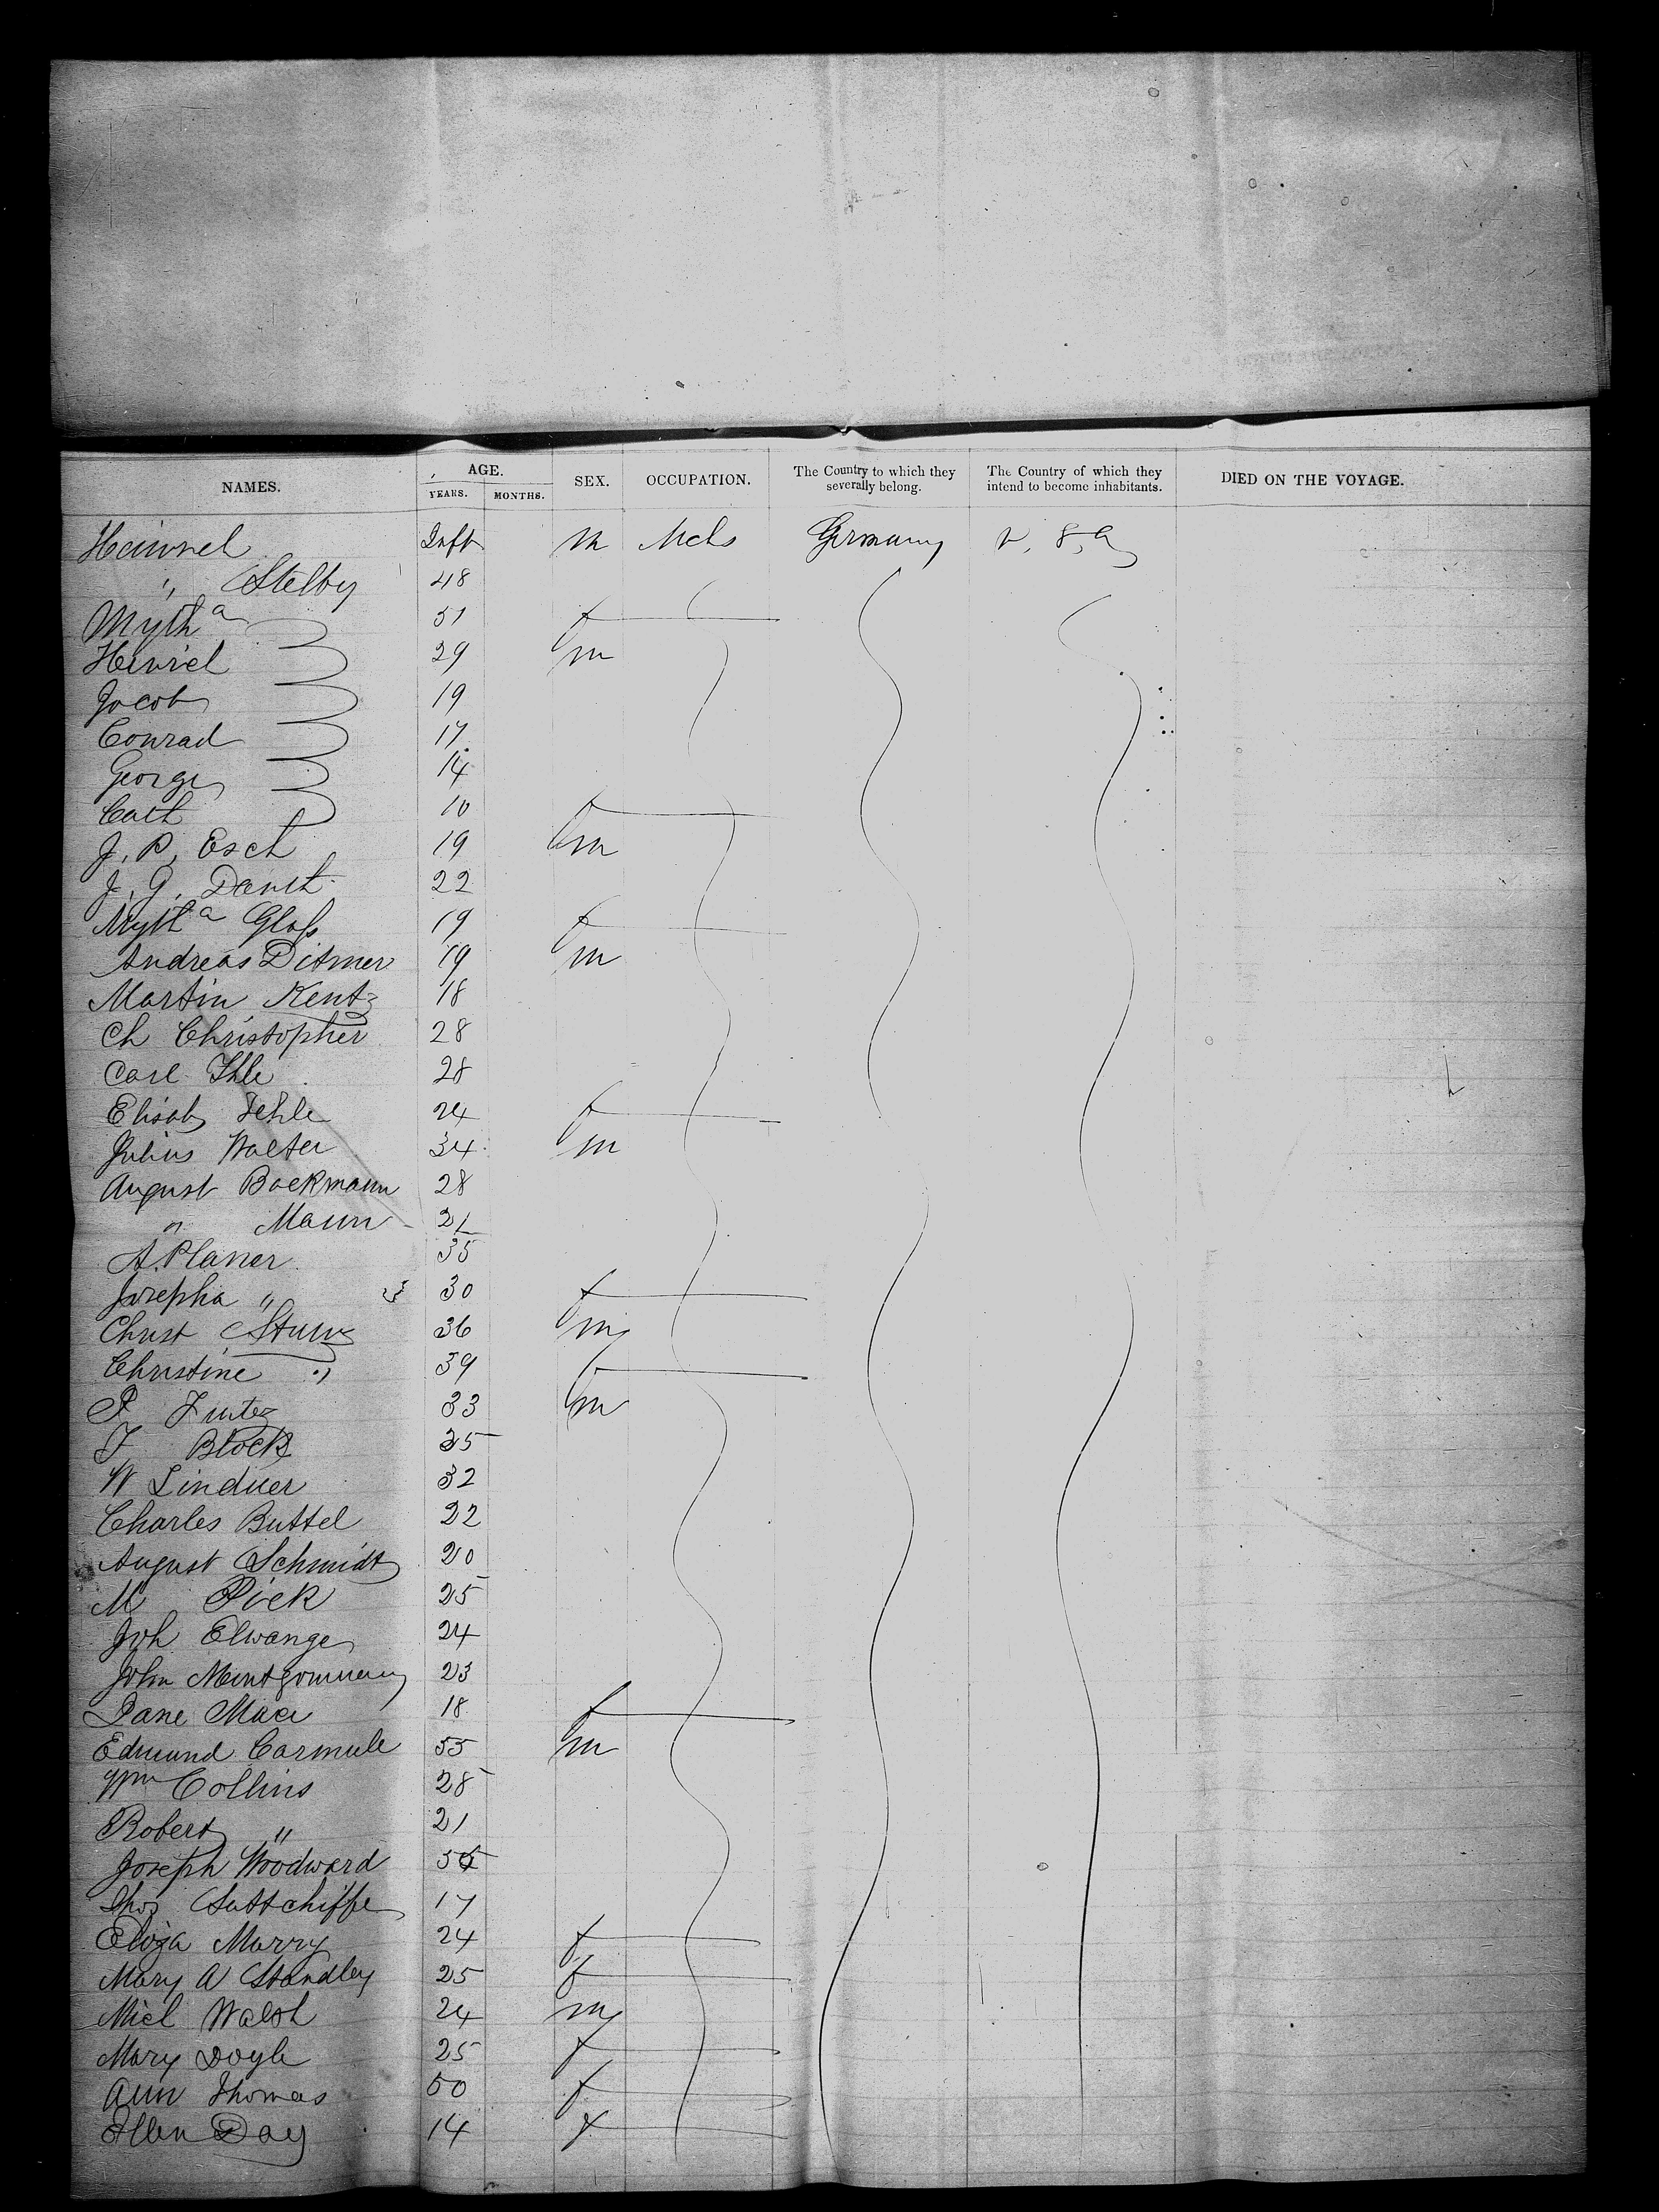 NAMES. AGE. YEARS. MONTHS. SEX. OCCUPATION. The Country to which they severally belong. The Country of which they intend to become inhabitants. DIED ON THE VOYAGE.
Heinrich Inft m Mchs Germany U, S, A
" Stelby 48
Mgth a 51 f
Heinrich 29 m
Jacob 19
Conrad 17
George 14
Cath 10 f
J. P. Esch 19 m
J. G. 22
Mgth a Glass 19 f
Andreas Ditmer 19 m
Martin Kentz 18
Ch Christopher 28
Carl Ihle 28
Elisab Iehle 24 f
Julius Walter 34 m
August Backmann 28
" Mann 21
A. Planer 35
Josepha " 30 f
Christ Sturz 36 m
Christine " 39 f
P 33 m
F Block 35
W Lindner 32
Charles Buttel 22
August Schmidt 20
M Pick 25
Joh Elwange 24
John Montgommery 23
Jane 18 f
Edmund Carmule 55 m
Wm Collins 28
Robert " 21
Joseph Woodward
Thos Suttchiffe 17
Eliza Marry 24 f
Mary A Standley 25 f
Micl Walsh 24 m
Mary Doyle 25 f
Ann Thomas 50 f
Ellen Day 14 f